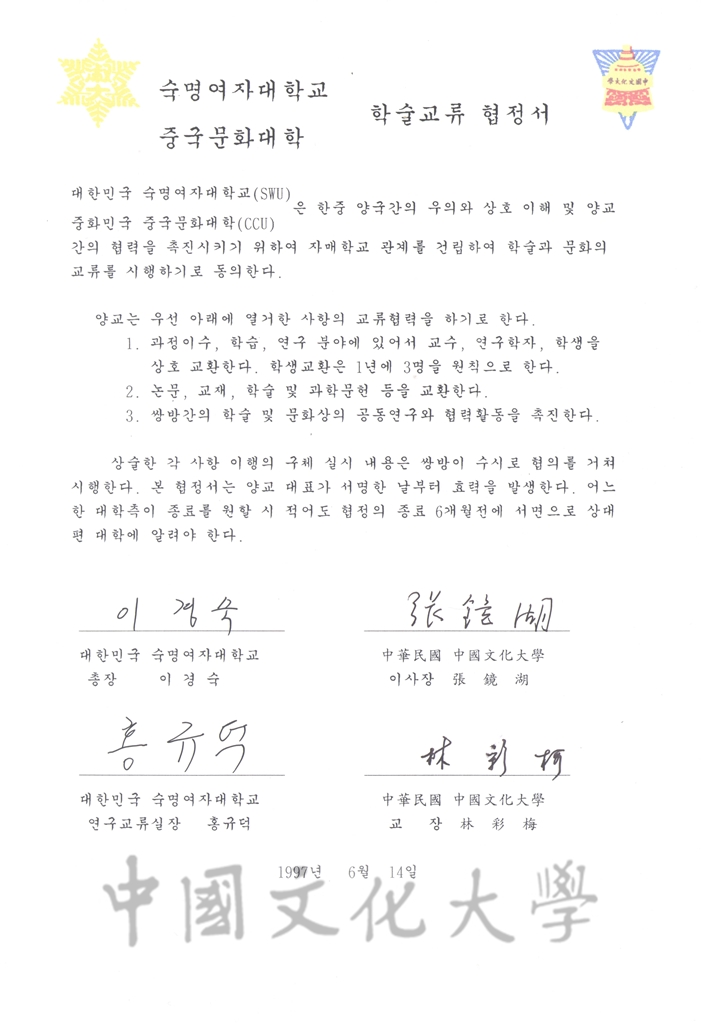 숙명여자대학교
중국문화대학
학술교류 협정서
學大化文國中
대한민국 숙명여자대학교(SWU)
중화민국 중국문화대학(CCU)
은 한중 양국간의 우의와 상호 이해 및 양교
간의 협력을 촉진시키기 위하여 자매학교 관계를 건립하여 학술과 문화의
교류를 시행하기로 동의한다.
양교는 우선 아래에 열거한 사항의 교류협력을 하기로 한다.
1. 과정이수, 학습, 연구 분야에 있어서 교수, 연구학자, 학생을
상호 교환한다. 학생교환은 1년에 3명을 원칙으로 한다.
2. 논문, 교재, 학술 및 과학문헌 등을 교환한다.
3. 쌍방간의 학술 및 문화상의 공동연구와 협력활동을 촉진한다.
상술한 각 사항 이행의 구체 실시 내용은 쌍방이 수시로 협의를 거쳐
시행한다. 본 협정서는 양교 대표가 서명한 날부터 효력을 발생한다. 어느
한 대학측이 종료를 원할 시 적어도 협정의 종료 6개월전에 서면으로 상대
편 대학에 알려야 한다.
이경숙
張鏡湖
대한민국 숙명여자대학교
총장 이 경 숙
中華民國 中國文化大學
이사장 張 鏡 湖
홍규덕
林彩梅
대한민국 숙명여자대학교
연구교류실장 홍규덕
中華民國 中國文化大學
교 장 林 彩 梅
1997년 6월 14일
中國文化大學